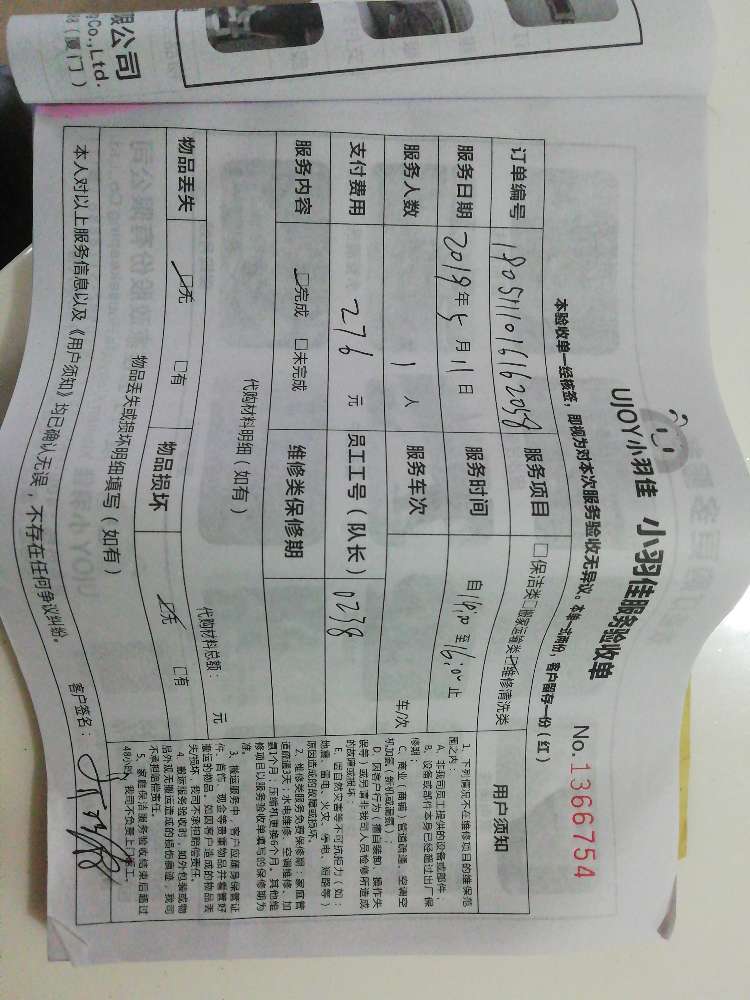 限公司
Co.,Ltd.
（厦门）
UJOY小羽佳 小羽佳服务验收单
No.1366754
本验收单一经核签，即视为对本次服务验收无异议。本单一式两份，客户留存一份（红）
订单编号 180511016162058 服务项目 □保洁类□搬家运输类☑维修清洗类
服务日期 2018年5月11日 服务时间
服务人数 1 人 服务车次 车/次
支付费用 276 元 员工工号（队长） 0238
服务内容 ☑完成 □未完成 维修类保修期
代购材料明细（如有） 代购材料总额： 元
物品丢失 ☑无 □有 物品损坏 ☑无 □有
物品丢失或损坏明细填写（如有）
本人对以上服务信息以及《用户须知》均已确认无误，不存在任何争议纠纷。 客户签名：
用户须知
1、下列情况不在维修项目的维保范
围之内：
A、非我司员工提供的设备或部件；
B、设备或部件本身已经超过出厂保
修期；
C、商业（商铺）管道疏通、空调空
D、因客户行为（擅自装卸、操作失
误等）或另请非我司人员检修所造成
的故障或损坏
E、因自然灾害等不可抗拒力（如：
地震、雷电、火灾、停电、短路等）
原因造成的故障或损坏。
2、维修类服务免费保修期：家庭管
道疏通3天；水电维修、空调维修、加
氨1个月；压缩机更换6个月。其他维
修项目以服务验收单填写的保修期为
准。
3、搬运服务中，客户应随身保管证
件、首饰、现金等贵重物品并看管好
搬运的物品，如因客户造成的物品丢
失/损坏，我司不承担赔偿责任。
4、搬运服务验收时，如外包装或物
品外观无搬运造成的损伤痕迹，我司
不承担赔偿责任。
5、家庭保洁服务验收结束后超过
48小时，我司不负责上门返工。